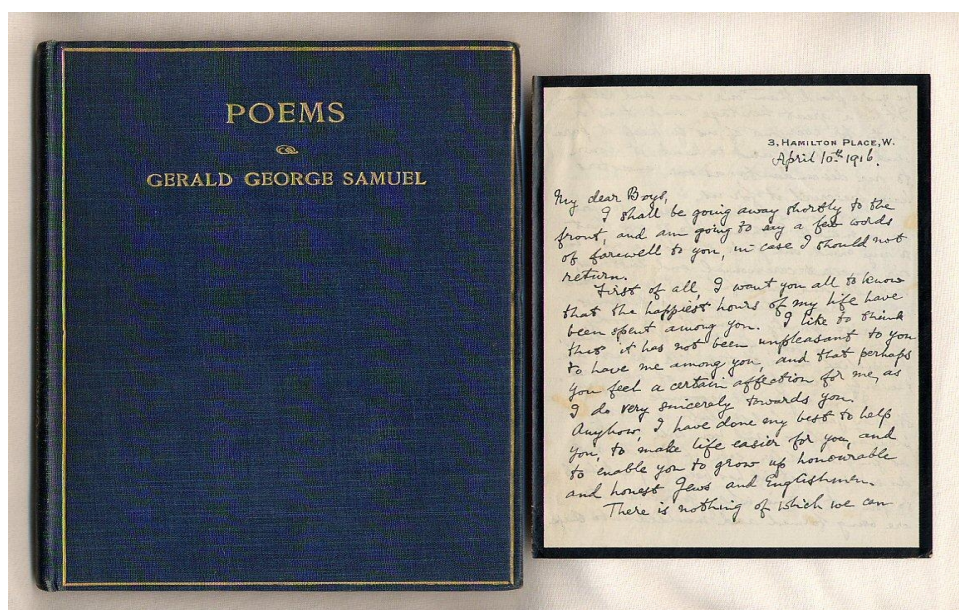 POEMS
GERALD GEORGE SAMUEL
3, HAMILTON PLACE, W.
April 10th 1916.
My dear Boys,
I shall be going away shortly to the
front, and am going to say a few words
of farewell to you, in case I should not
return.
First of all, I want you all to know
that the happiest hours of my life have
been spent among you. I like to think
that it has not been unpleasant to you
to have me among you, and that perhaps
you feel a certain affection for me, as
I do very sincerely towards you.
Anyhow, I have done my best to help
you, to make life easier for you, and
to enable you to grow up honourable
and honest Jews and Englishmen.
There is nothing of which we can